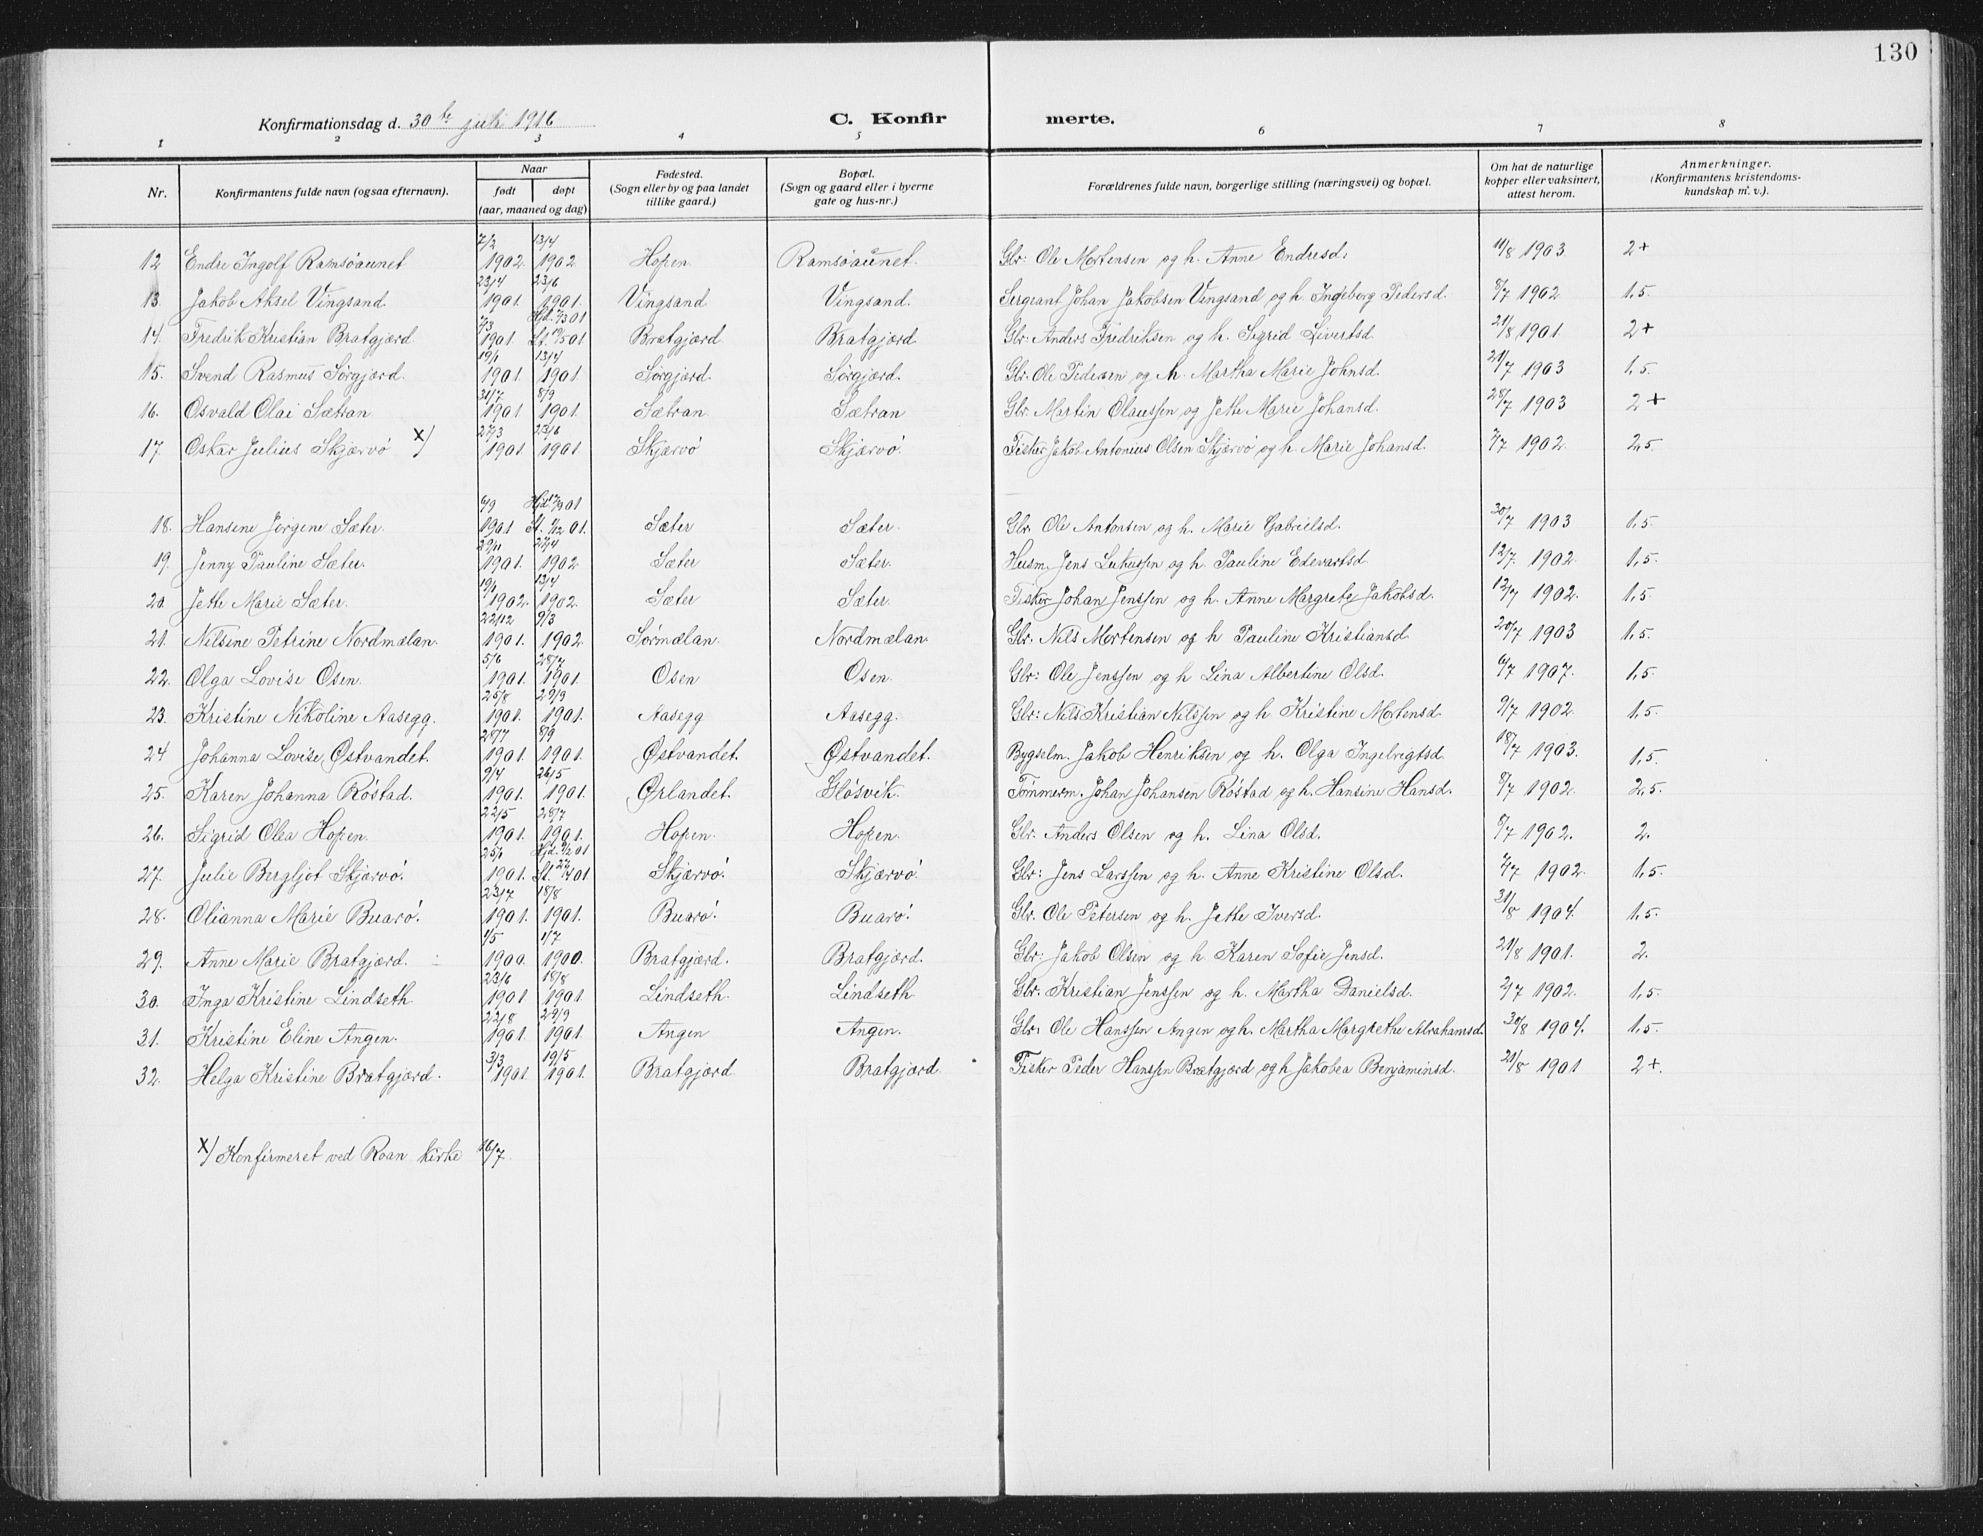 130
Konfirmationsdag d. 30te juli 1916
C. Konfirmerte.
1 2 3 4 5 6 7 8
Nr. Konfirmantens fulde navn (ogsaa efternavn). Naar født døpt (aar, maaned og dag) Fødested. (Sogn eller by og paa landet tillike gaard.) Bopæl. (Sogn og gaard eller i byerne gate og hus-nr.) Forældrenes fulde navn, borgerlige stilling (næringsvei) og bopæl. Om hat de naturlige kopper eller vaksinert, attest herom. Anmerkninger. (Konfirmantens kristendomskundskap m. v.).
12 Endre Ingolf Ramsøaunet 7/2 1902. 13/4 1902 Hopen Ramsøaunet. Gbr: Ole Mortensen og h. Anne Endresd: 11/8 1903. 2+
13 Jakob Aksel Vingsand 23/4 1901. 23/6 1901. Vingsand Vingsand. Sergeant Johan Jakobsen Vingsand og h. Ingeborg Pedersd. 8/7 1902 1,5.
14. Fredrik Kristian Bratgjærd 7/3 1901. Hjd. 7/3 01 St. 19/5 01 Bratgjærd Bratgjærd Gbr: Anders Fredriksen og h. Sigrid Sivertsd. 21/8 1901. 2+
15. Svend Rasmus Sørgjærd. 19/1 1901. 13/4 1901. Sørgjærd. Sørgjærd. Gbr. Ole Pedersen og h. Martha Marie Johnsd. 21/7 1903 1,5.
16. Osvald Olai Sætran 31/7 1901 8/9 1901. Sætran Sætran Gbr. Martin Olaussen og Jette Marie Johansd. 28/7 1903 2+
17. Oskar Julius Skjærvø x) 27/3 1901 23/6 1901 Skjærvø Skjærvø. Fisker Jakob Antonius Olsen Skjærvø og h. Marie Johansd. 7/7 1902. 2,5.
18. Hansine Jørgine Sæter. 6/9 1901 Hjd. 17/9 01 St. 1/12 01. Sæter Sæter. Gbr. Ole Antonsen og h. Marie Gabrielsd. 30/7 1903 1,5.
19. Jenny Pauline Sæter. 29/11 1901. 27/4 1902 Sæter Sæter. Husm. Jens Lukassen og h. Pauline Edevartsd 12/7. 1902. 1,5.
20. Jette Marie Sæter. 19/1 1902. 13/4 1902. Sæter Sæter. Fisker Johan Jenssen og h. Anne Margrete Jakobsd. 12/7 1902. 1,5.
21. Nilsine Petrine Nordmælan. 22/12 1901. 9/3 1902 Sørmælan Nordmælan. Gbr. Nils Mortensen og h Pauline Kristiansd. 20/7 1903 1,5.
22. Olga Lovise Osen. 5/6 1901 28/7 1901. Osen Osen. Gbr: Ole Jenssen og h Lina Albertine Olsd. 6/7 1907. 1,5.
23. Kristine Nikoline Aasegg. 25/8 1901. 29/9 1901. Aasegg Aasegg. Gbr: Nils Kristian Nilssen og h Kristine Mortensd. 9/7 1902. 1,5.
24 Johanna Lovise Østvandet. 28/7 1901 8/9 1901. Østvandet. Østvandet. Bygselm. Jakob Henriksen og h. Olga Ingebrigtsd. 18/7 1903. 1,5.
25. Karen Johanna Røstad. 9/4 1901. 26/5 1901. Ørlandet. Sløsvik. Tømmerm. Johan Johansen Røstad og h. Hansine Hansd. 8/7 1902. 2,5.
26. Sigrid Olea Hopen. 22/5 1901. 28/7 1901. Hopen. Hopen. Gbr. Anders Olsen og h. Lina Olsd. 8/7 1902. 2.
27. Julie Bergljot Skjærvø. 25/1 1901. Hjd. 9/2 01 St. 22/4 01 Skjærvø. Skjærvø. Gbr: Jens Larssen og h. Anne Kristine Olsd. 7/7 1902. 1,5.
28. Olianna Marie Buarø. 23/7 1901. 18/8 1901. Buarø. Buarø. Gbr. Ole Petersen og h. Jette Iversd. 31/8 1904. 1,5.
29. Anne Marie Bratgjærd. 1/5 1900. 1/7 1900. Bratgjærd. Bratgjærd. Gbr: Jakob Olsen og h Karen Sofie Jensd. 21/8 1901. 2.
30. Inga Kristine Lindseth. 23/6 1901 18/8 1901. Lindseth. Lindseth Gbr. Kristian Jenssen og h. Martha Danielsd. 2/7 1902. 1,5.
31. Kristine Eline Angen. 22/8 1901. 29/9 1901. Angen Angen. Gbr: Ole Hanssen Angen og h. Martha Margrethe Abrahamsd. 30/8 1904. 1,5.
32. Helga Kristine Bratgjærd. 3/3 1901. 19/5 1901. Bratgjærd Bratgjærd. Fisker Peder Hanssen Bratgjærd og h Jakobea Benjaminsd. 21/8 1901 2+.
x) Konfirmeret ved Roan kirke 16/7.